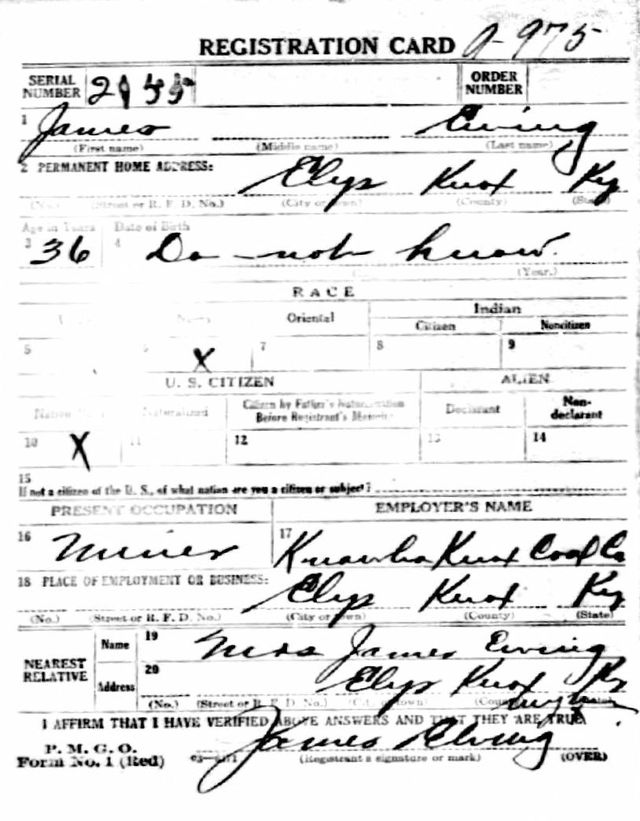 REGISTRATION CARD A-975
SERIAL NUMBER 2155 ORDER NUMBER
1 James Ewing
(First name) (Middle name) (Last name)
2 PERMANENT HOME ADDRESS: Elys Knox Ky
(No.) (Street or R. F. D. No.) (City or town) (County) (State)
Age in Years Date of Birth
3 36 4 Do not know.
(Year.)
RACE
Oriental Indian
Citizen Noncitizen
5 6 X 7 8 9
U. S. CITIZEN ALIEN
Native Naturalized Citizen by Father's Naturalization Before Registrant's Declarant Non-declarant
10 X 11 12 13 14
15
If not a citizen of the U. S., of what nation are you a citizen or subject?
PRESENT OCCUPATION EMPLOYER'S NAME
16 Miner 17 Knox Coal Co
18 PLACE OF EMPLOYMENT OR BUSINESS: Elys Knox Ky
(No.) (Street or R. F. D. No.) (City or town) (County) (State)
NEAREST RELATIVE Name 19 Mrs James Ewing
Address 20 Elys Knox Ky
(No.) (Street or R. F. D. No.) (City or town)
I AFFIRM THAT I HAVE VERIFIED ABOVE ANSWERS AND THAT THEY ARE TRUE
P. M. G. O.
Form No. 1 (Red) James Ewing
(Registrant's signature or mark) (OVER)